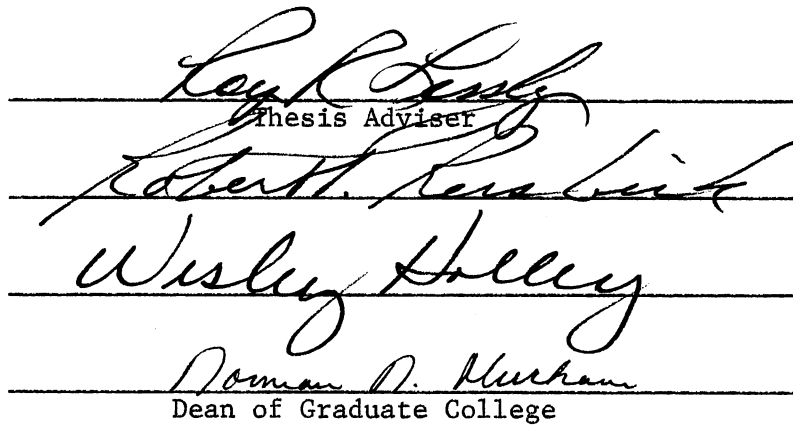 Roy R Lessly
Thesis Adviser
Robert
Wesley Holley
Norman N. Durham
Dean of Graduate College